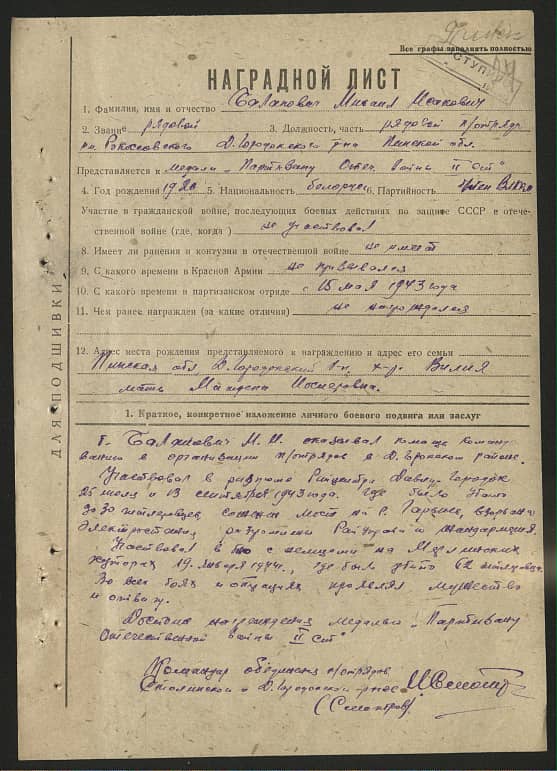 Пинск
Все графы заполнять полностью
НАГРАДНОЙ ЛИСТ
1. Фамилия, имя и отчество Балапович Михаил Исакович
2. Звание рядовой 3. Должность, часть рядовой п/отряда
им. Рокоссовского Д. Городокского р-на Пинской обл.
Представляется к медали „Партизану Отеч. Войны II ст"
4. Год рождения 192 5. Национальность белорус 6. Партийность член ВЛКСМ
Участие в гражданской войне, последующих боевых действиях по защите СССР и отече-
ственной войне (где, когда) не участвовал
8. Имеет ли ранения и контузии в отечественной войне не имеет
9. С какого времени в Красной Армии не призывался
10. С какого времени в партизанском отряде с 15 мая 1943 года
11. Чем ранее награжден (за какие отличия) не награждался
12. Адрес места рождения представляемого к награждению и адрес его семьи
Пинская обл, Д. Городокский р-н, х-р. Вилия
мать
ДЛЯ ПОДШИВКИ
1. Краткое, конкретное изложение личного боевого подвига или заслуг
т. Балапович М. И. оказывал помощь командо-
ванию в организации п/отрядов в Д. Городокском районе.
Участвовал в разгроме Райцентра Давид-Городок
25 июля и 13 сентября 1943 года. Где было убито
до 30 гитлеровцев, сожжен мост на р. Горынь, взорвана
Электростанция, разгромлены Райуправа и жандармерия.
Участвовал в бою с немцами на
хуторах 19 января 1944, где было убито 62 гитлеровца.
Во всех боях и операциях проявлял мужество
и отвагу.
Достоин награждения медалью „Партизану
Отечественной Войны II ст"
Командир объединен. п/отрядов
Столинского и Д. Городокского р-нов